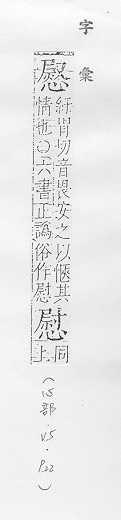 字彙
慰 紆胃切音畏安之以愜其
情也○六書正譌俗作慰 慰 同
上
(心部.V5.P22)